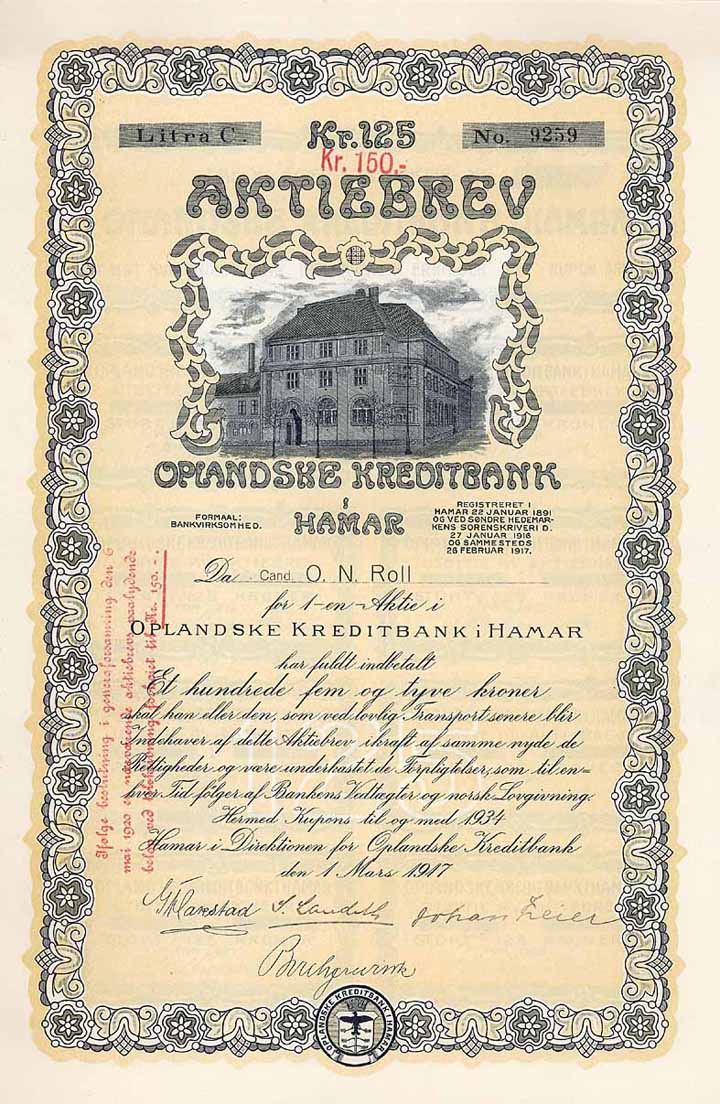 Litra C.
Kr. 125
No. 9259
Kr. 150.-
AKTIEBREV
OPLANDSKE KREDITBANK
i
HAMAR
FORMAAL:
BANKVIRKSOMHED.
REGISTRERET I
HAMAR 22 JANUAR 1891
OG VED SØNDRE HEDEMAR-
KENS SORENSKRIVERI D.
27 JANUAR 1916
OG SAMMESTEDS
26 FEBRUAR 1917.
Da Cand. O. N. Roll
for 1-en-Aktie i
OPLANDSKE KREDITBANK i HAMAR
har fuldt indbetalt
Et hundrede fem og tyve kroner
skal han eller den, som ved lovlig Transport senere blir
Indehaver af dette Aktiebrev i kraft af samme nyde de
Rettigheder og være underkastet de Forpligtelser, som til en-
hver Tid følger af Bankens Vedtægter og norsk Lovgivning.
Hermed Kupons til og med 1934
Hamar i Direktionen for Oplandske Kreditbank
den 1 Mars 1917
Ifølge beslutning i generalforsamling den 6
mai 1920 er nærværende aktiebrevs paalydende
beløp ved forhøiet til Kr. 150.-
Johan Zeier
OPLANDSKE KREDITBANK HAMAR